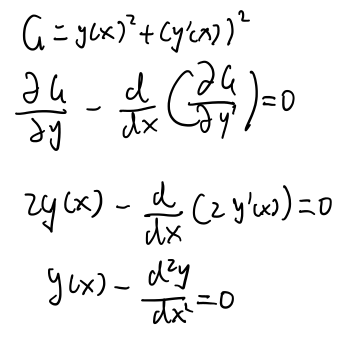 G = y(x)² + (y'(x))²
∂G/∂y - d/dx (∂G/∂y') = 0
2y(x) - d/dx (2y'(x)) = 0
y(x) - d²y/dx² = 0